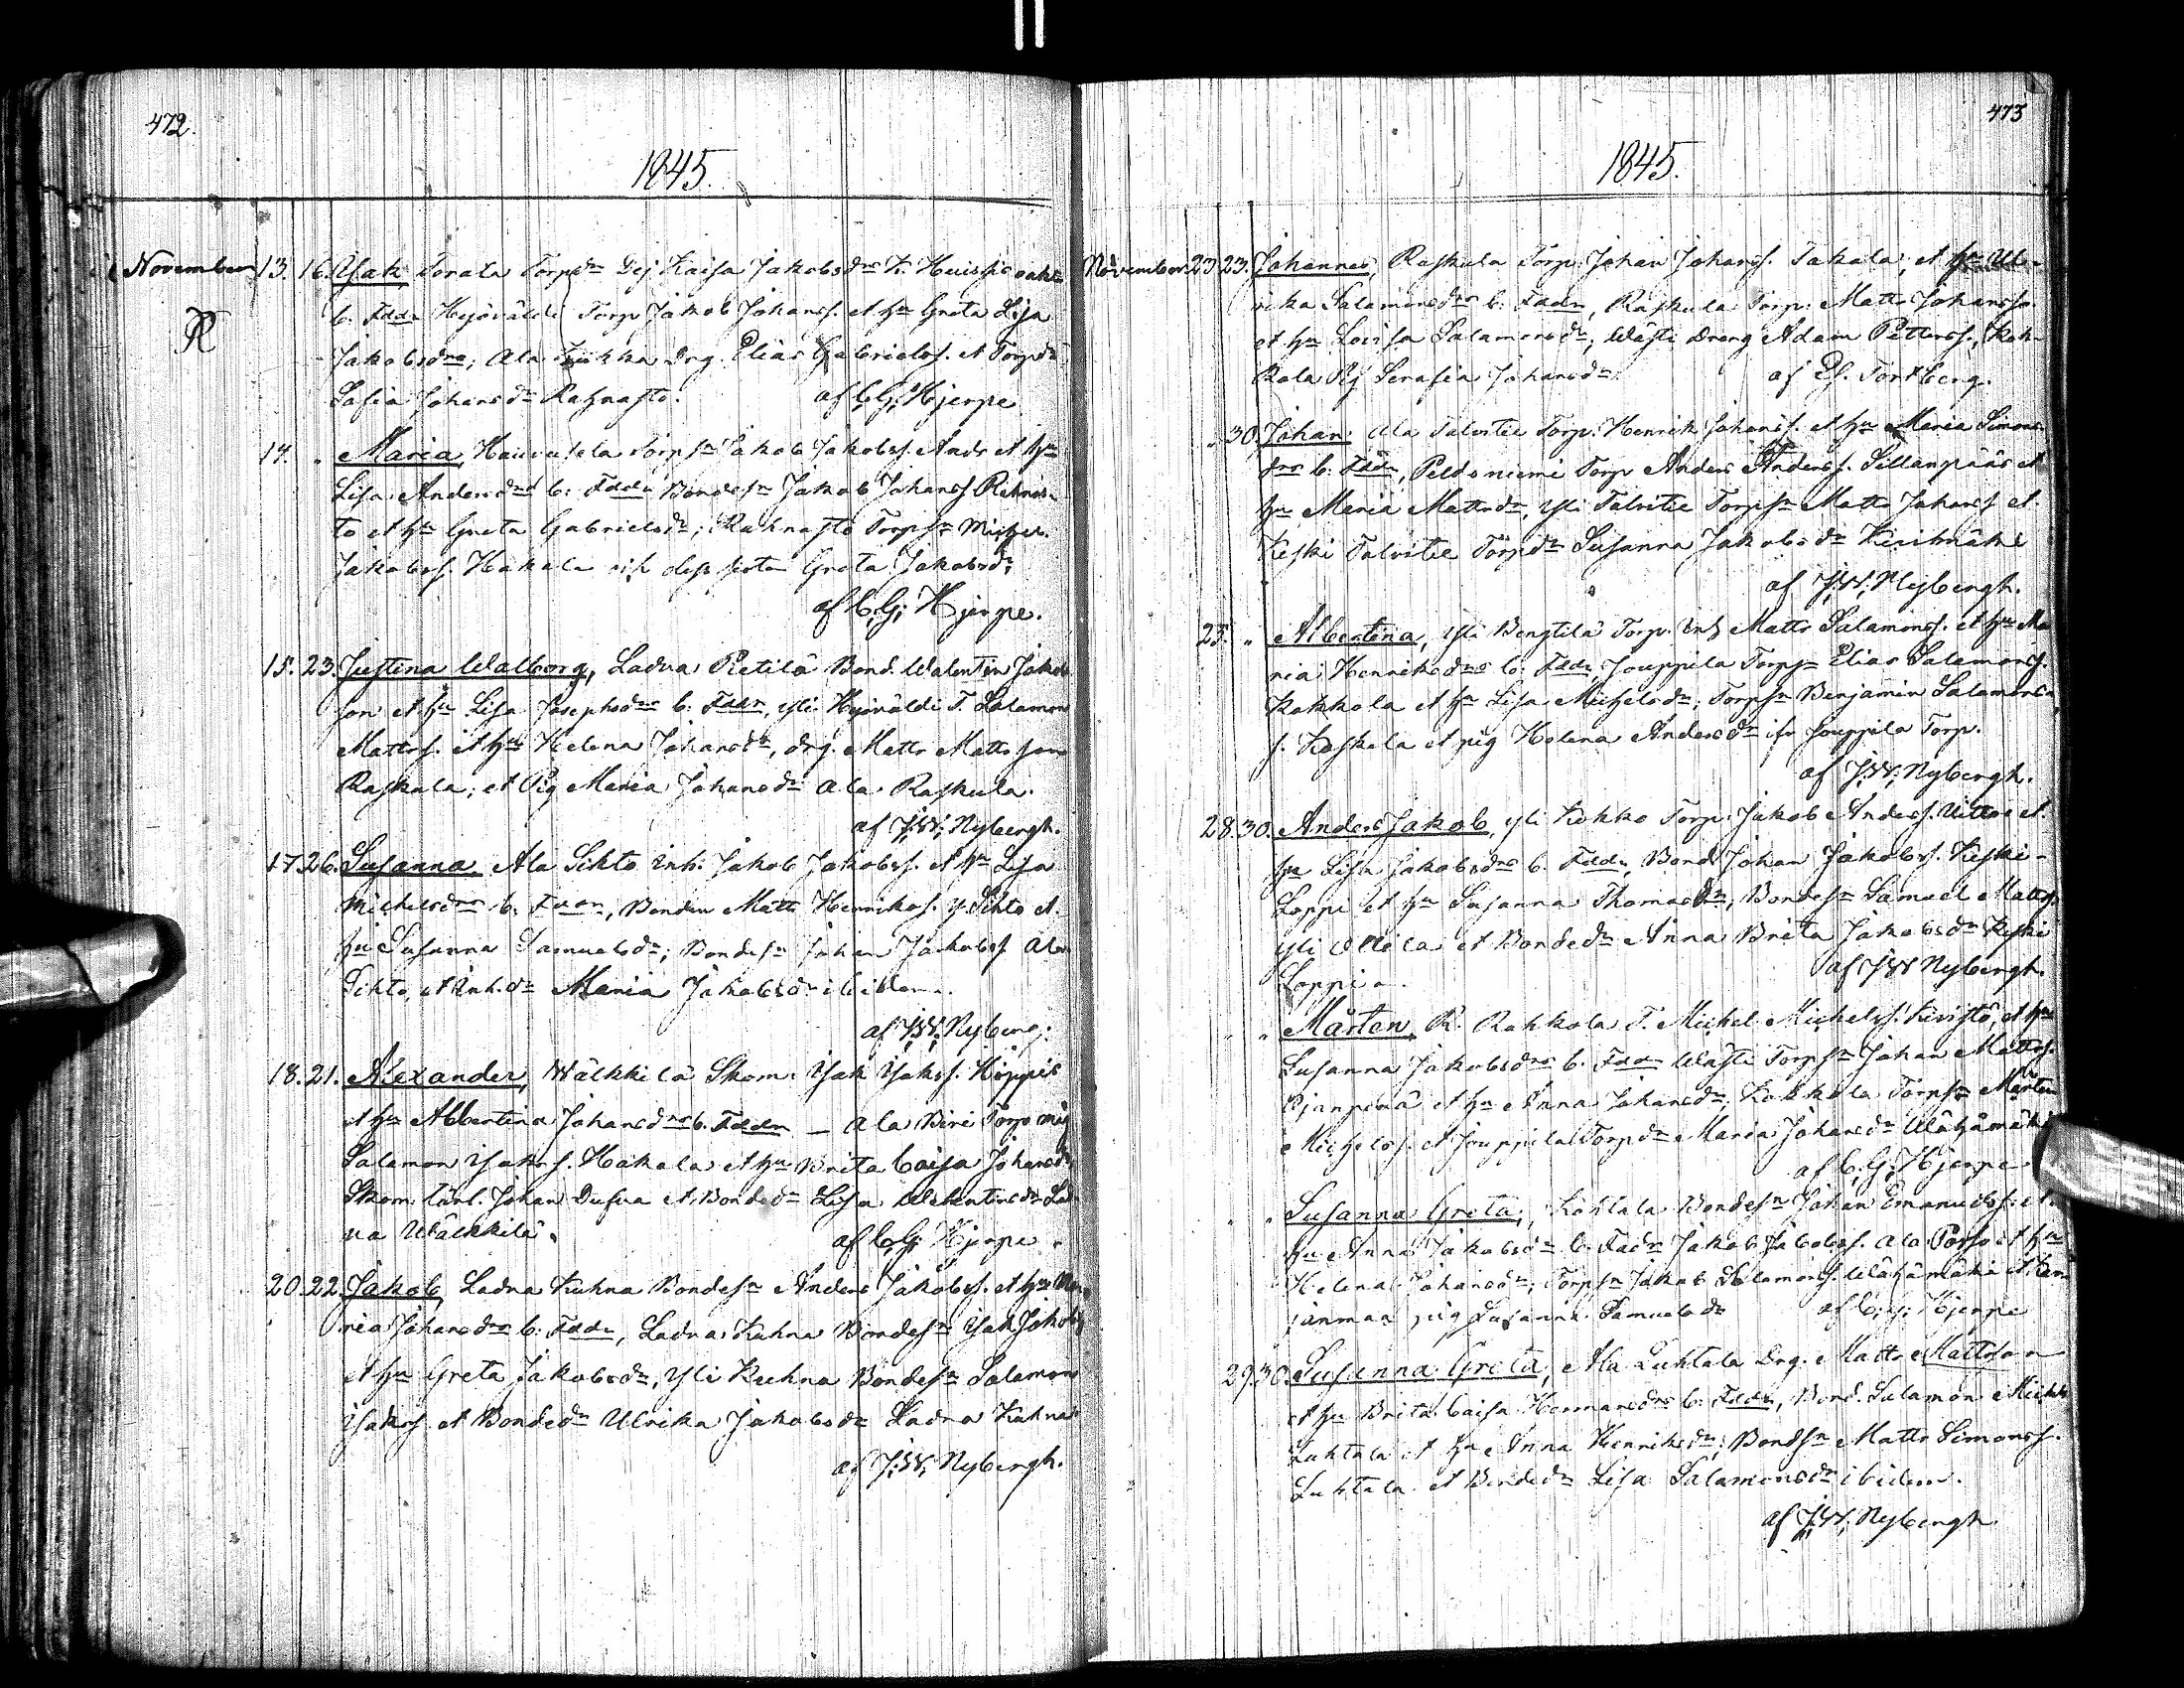 472.
1845.
November 13. 16. Isak, Torala Torpdr Pig Kaisa Jakobsdrs K.
b. Fddr Hyöväldi Torp. Jakob Johanss. et hu Greta Lisa
Jakobsdrs; Ala Drg. Elias Gabrielss. et Torpdr
Safia Johansdr Rahnasto. af C.G. Hjerpe
14. " Maria, Torpsn Jakob Jakobss. et hu
Lisa Andersdrs b. Fddr Bondesn Jakob Johanss Rahnas-
to et hu Greta Gabrielsdr; Rahnasto Torpsn Michel
Jakobss. Hakala Greta Jakobsdr
af C.G. Hjerpe.
15. 23. Justina Walborg, Ladva Pietilä Bond. Walentin Jakobs
son et hu Lisa Josephsdrs b. Fddr, Yli Hyöväldi T. Salamon
Mattss. et hu Helena Johansdr, Drg. Matts Mattsson
Raskala; et Pig Maria Johansdr Ala Raskula.
af J.W. Nybergh.
17. 26. Susanna, Ala Sihto Inh. Jakob Jakobss. et hu Lisa
Michelsdrs b. Fddr, Bonden Matts Henrikss. Y. Sihto et
hu Susanna Samuelsdr; Bondesn Johan Jakobss Ala
Sihto, et Inh.dr Maria Jakobsdr ibidem.
af J.W. Nyberg.
18. 21. Alexander, Wälkkilä Skom. Isak Isakss. Hoppis
et hu Albertina Johansdrs b. Fddr — Ala Torp. måg
Salamon Isakss. Hakala et hu Brita Caisa Johansdr
Skom. lärl. Johan Dufva et Bondedr Lisa Walentinsdr Lad
va Wälkkilä. af C.G. Hjerpe.
20. 22. Jakob, Ladva Kuhna Bondesn Anders Jakobss. et hu Ma
ria Johansdrs b. Fddr, Ladva Kuhna Bondesn Isak Jakobss
et hu Greta Jakobsdr, Yli Kuhna Bondesn Salamon
Isakss. et Bondedr Ulrika Jakobsdr Ladva Kuhna
af J.W. Nybergh.
473
1845.
November 23. 23. Johannes, Raskula Torp. Johan Johanss. Takala, et hu Ul-
rika Salamonsdrs b. Fddr, Raskula Torp. Matts Johanss.
et hu Lovisa Salamonsdr; Wästi Dreng Adam Petterss. Kok-
kola Pig Serafia Johansdr. af Ef. Forsberg.
" 30. Johan, Ala Talvitie Torp. Henrik Johanss. et hu Maria Simons
drs b. Fddr, Peldoniemi Torp Anders Anderss. Sillanpää et
hu Maria Mattsdr, Yli Talvitie Torpsn Matts Johanss et
Keski Talvitie Torpdr Susanna Jakobsdr
af J.W. Nybergh.
25. " Albertina, Yli Bengtilä Torp. Inh Matts Salamonss. et hu Ma
ria Henriksdrs b. Fddr, Jouppila Torpsn Elias Salamonss.
Kokkola et hu Lisa Michelsdr; Torpsn Benjamin Salamons
s. Koskela et pig Helena Andersdr ifr Jouppila Torp.
af J.W. Nybergh.
28. 30. Anders Jakob, Yli Kokko Torp. Jakob Anderss. et
hu Lisa Jakobsdrs b. Fddr, Bond. Johan Jakobss. Keski-
Loppi et hu Susanna Thomasdr; Bondesn Samuel Mattss.
Yli Ollila et Bondedr Anna Brita Jakobsdr Keski
Loppi. af J.W. Nybergh.
" " Mårten, R. Rahkola T. Michel Michelss. Kivistö, et hu
Susanna Jakobsdrs b. Fddr Wästi Torpsn Johan Mattss.
et hu Anna Johansdr; Kokkola Torpsn Mårten
Michelss. et Jouppila Torpdr Maria Johansdr Wähämäki
af C.G. Hjerpe
" " Susanna Greta, Bondesn Johan Emanuelss. et
hu Anna Jakobsdr b. Fddr Jakob Jakobss. Ala Porso et hu
Helena Johansdr; Torpsn Jakob Salamonss. Wähämäki et
pig Susanna Samuelsdr af C.G. Hjerpe
29. 30. Susanna Greta, Ala Luhtala Drg. Matts Mattsson
et hu Brita Caisa Hermansdrs b. Fddr, Bond. Salamon Michels
Luhtala et hu Anna Henriksdr; Bondsn Matts Simonss.
Luhtala et Bondedr Lisa Salamonsdr ibidem.
af J.W. Nybergh